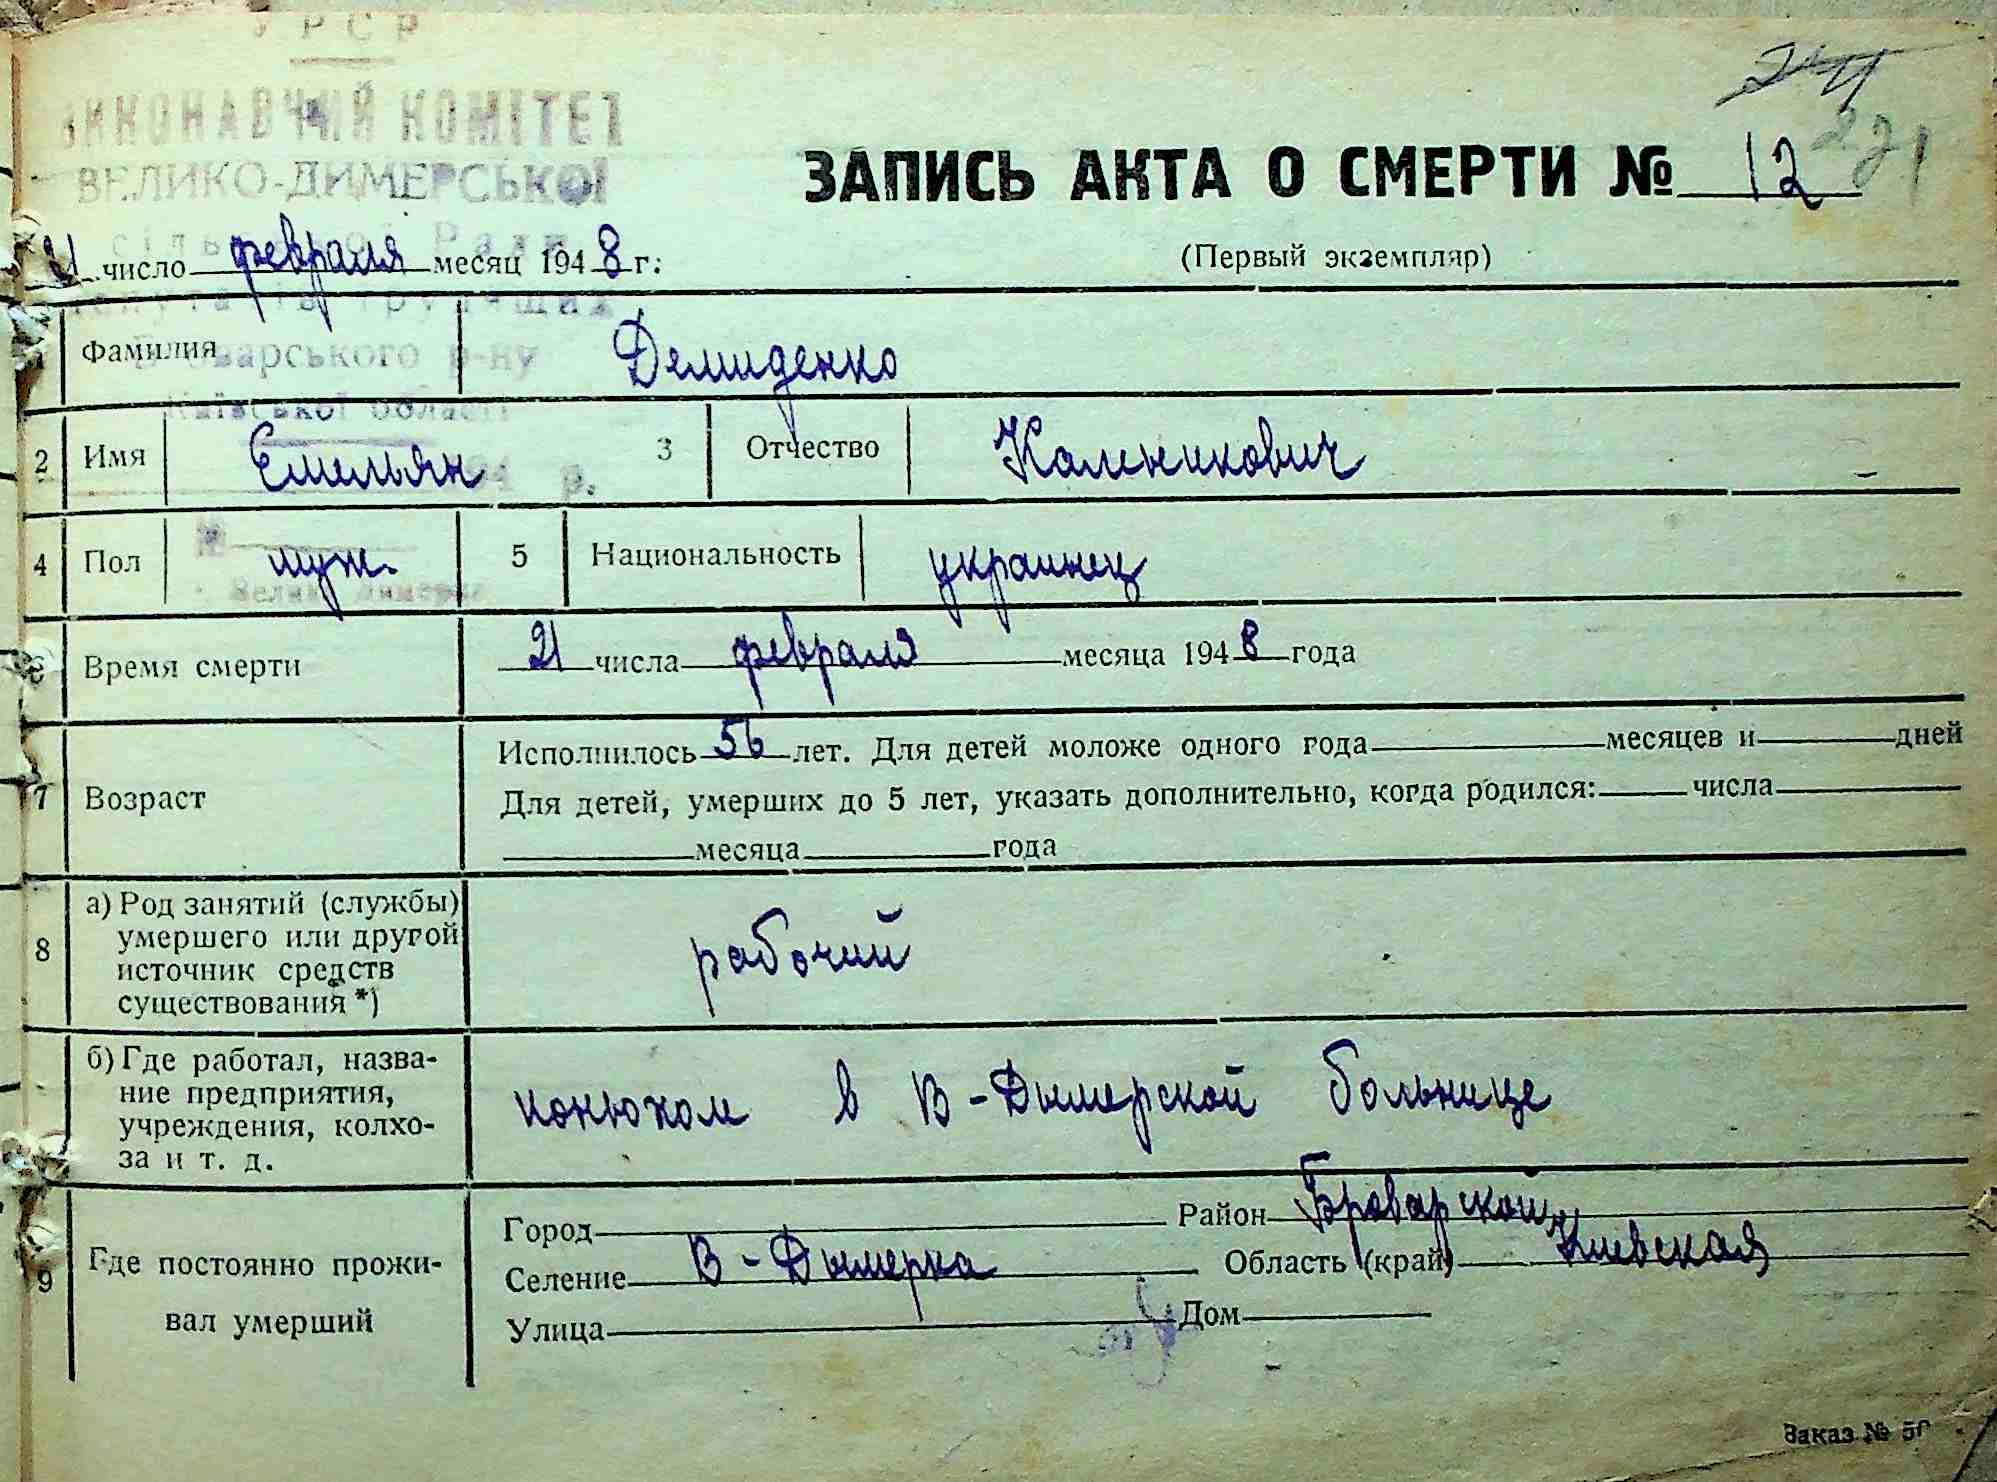 УРСР
ВИКОНАВЧИЙ КОМІТЕТ
ВЕЛИКО-ДИМЕРСЬКОЇ
сільської Ради
депутатів трудящих
Броварського р-ну
Київської області
194 р.
№
Велика Димерка
24
221
ЗАПИСЬ АКТА О СМЕРТИ № 12
(Первый экземпляр)
21 число февраля месяц 1948 г.
1 Фамилия Демиденко
2 Имя Емельян 3 Отчество Калникович
4 Пол муж. 5 Национальность украинец
6 Время смерти 21 числа февраля месяца 1948 года
7 Возраст
Исполнилось 56 лет. Для детей моложе одного года месяцев и дней
Для детей, умерших до 5 лет, указать дополнительно, когда родился: числа
месяца года
8 а) Род занятий (службы)
умершего или другой
источник средств
существования *)
рабочий
б) Где работал, назва-
ние предприятия,
учреждения, колхо-
за и т. д.
конюхом в В-Дымерской больнице
9 Где постоянно прожи-
вал умерший
Город Район Броварской
Селение В-Дымерка Область (край) Киевская
Улица Дом
Заказ № 50